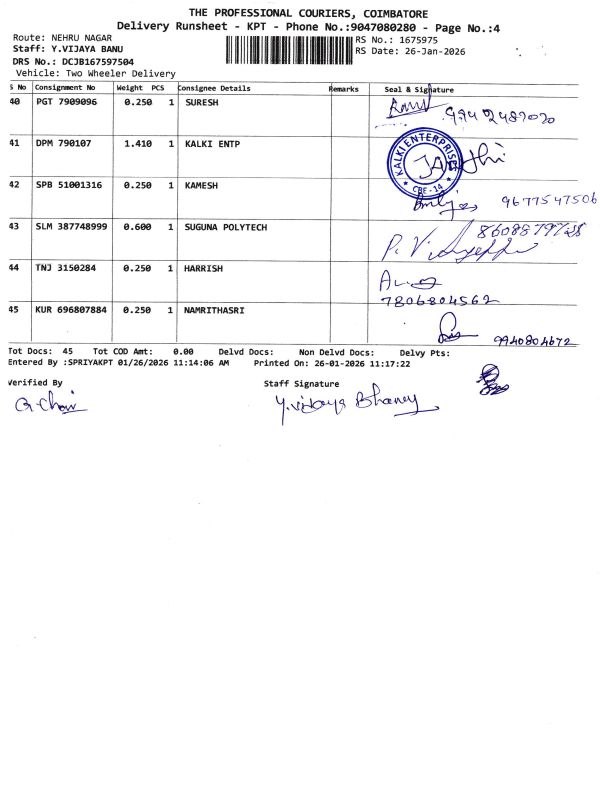 THE PROFESSIONAL COURIERS, COIMBATORE
Delivery Runsheet - KPT - Phone No.:9047080280 - Page No.:4
Route: NEHRU NAGAR
RS No.: 1675975
Staff: Y.VIJAYA BANU
RS Date: 26-Jan-2026
DRS No.: DCJB167597504
Vehicle: Two Wheeler Delivery
S No Consignment No Weight PCS Consignee Details Remarks Seal & Signature
40 PGT 7909096 0.250 1 SURESH
9942487020
41 DPM 790107 1.410 1 KALKI ENTP
KALKI ENTERPRISES
CBE-14
42 SPB 51001316 0.250 1 KAMESH
9677547506
43 SLM 387748999 0.600 1 SUGUNA POLYTECH
44 TNJ 3150284 0.250 1 HARRISH
7806804562
45 KUR 696807884 0.250 1 NAMRITHASRI
9940804672
Tot Docs: 45 Tot COD Amt: 0.00 Delvd Docs: Non Delvd Docs: Delvy Pts:
Entered By :SPRIYAKPT 01/26/2026 11:14:06 AM Printed On: 26-01-2026 11:17:22
Verified By Staff Signature
Y.vijaya Bhanu